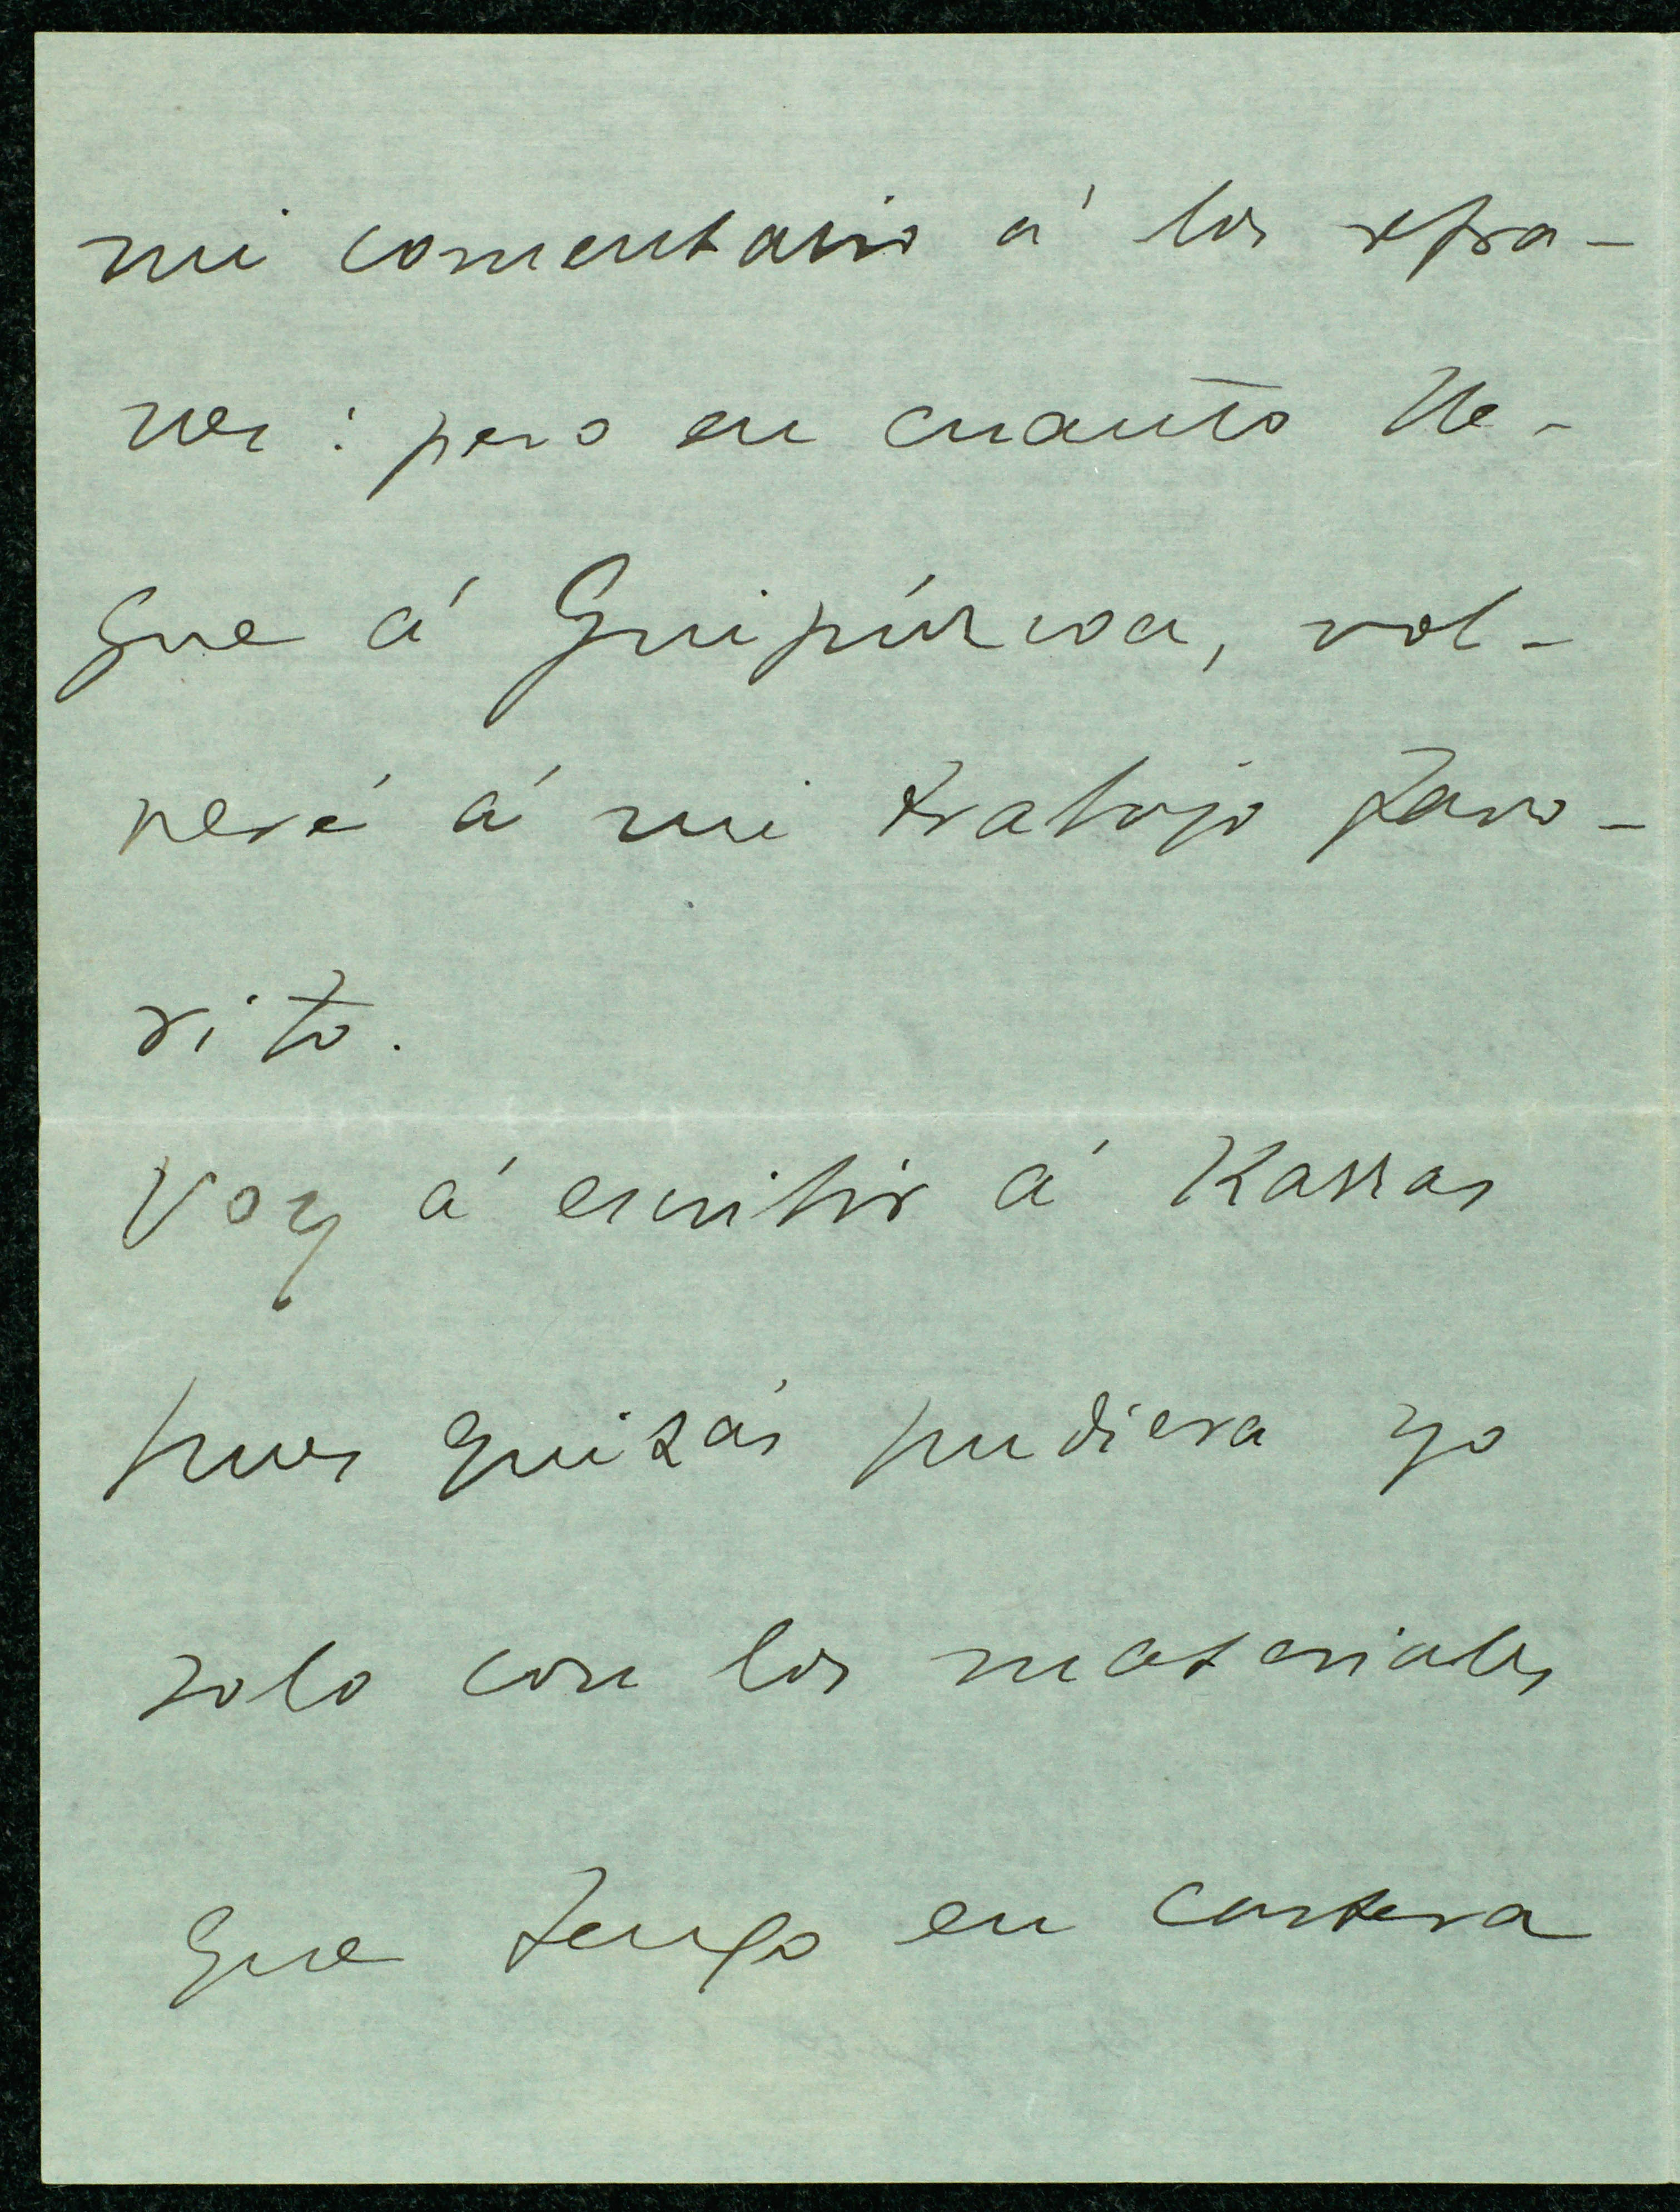 mi comentario á los refra-
nes: pero en cuanto lle-
gue á Guipúzcoa, vol-
veré á mi trabajo favo-
rito.
Voy á escribir á
pues quizás pudiera yo
solo con los materiales
que tengo en cartera